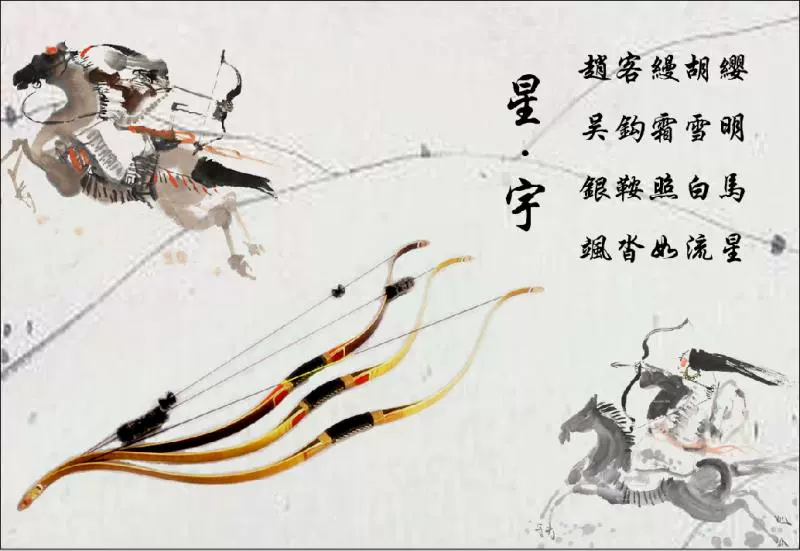 星·宇
趙客縵胡纓
吴鈎霜雪明
銀鞍照白馬
颯沓如流星